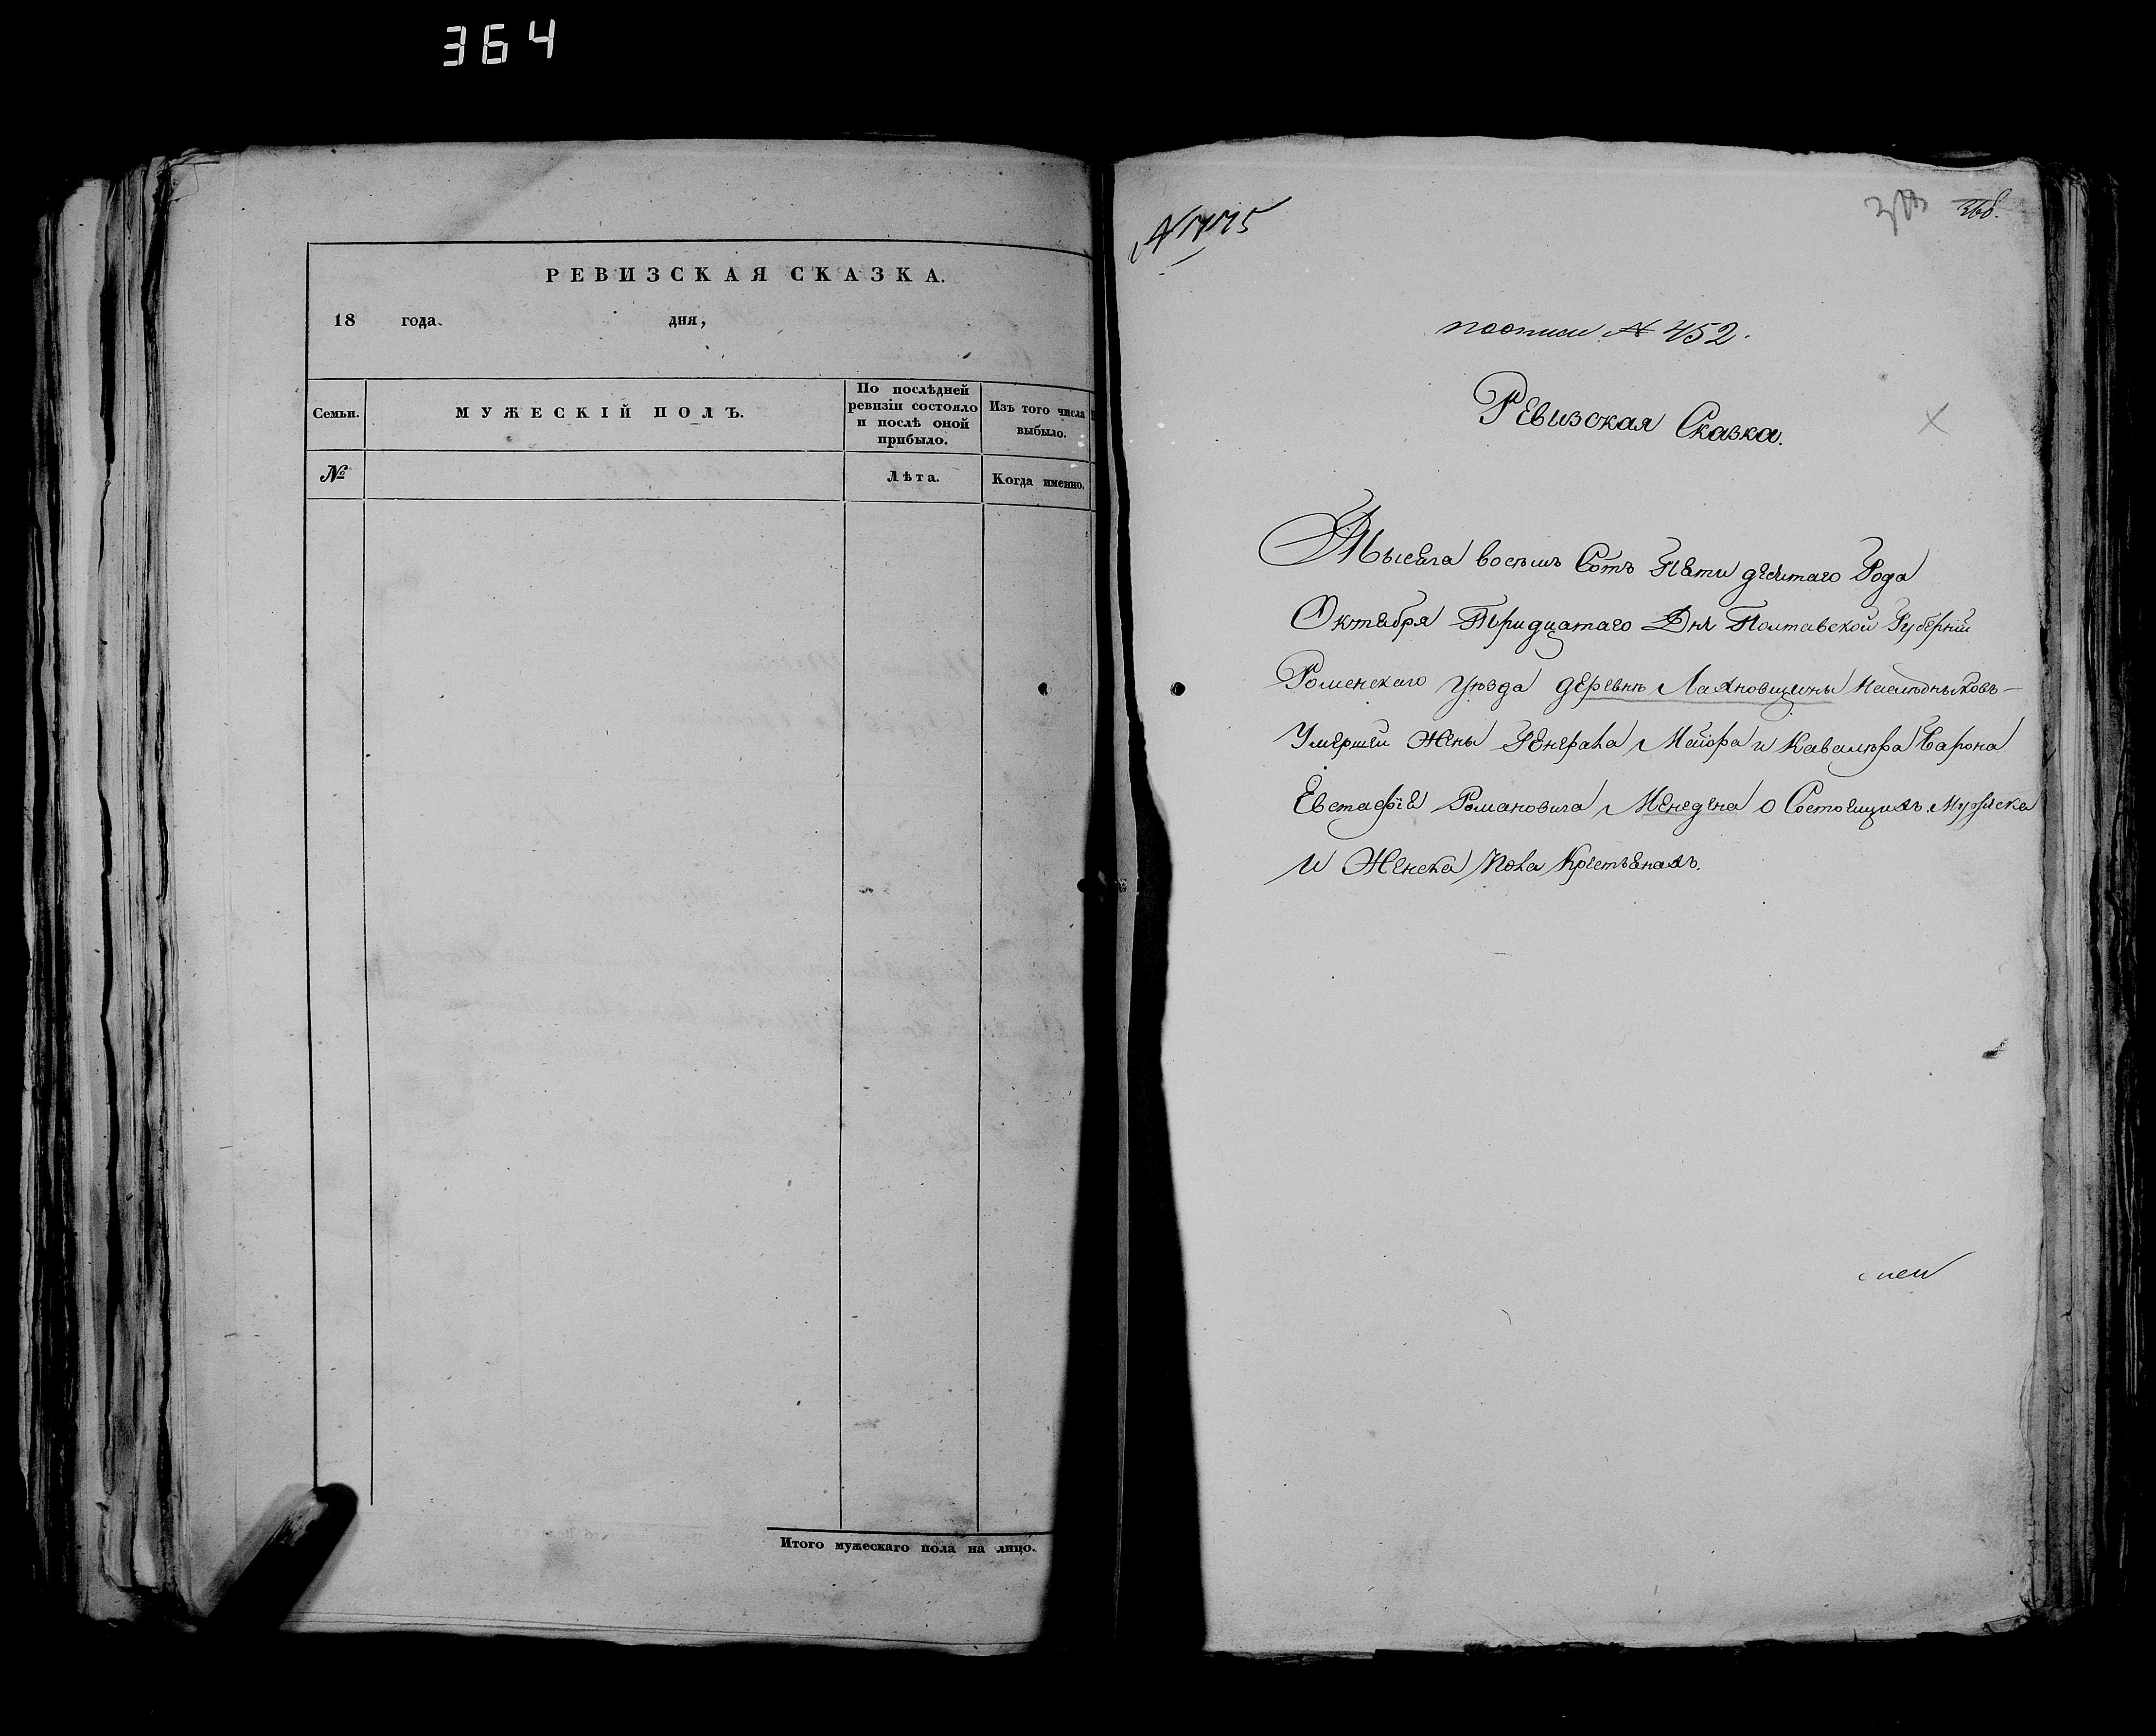 364
РЕВИЗСКАЯ СКАЗКА.
18 года. дня,
Семьи.
МУЖЕСКІЙ ПОЛЪ.
По послѣдней
ревизіи состояло
и послѣ оной
прибыло.
Изъ того числа
выбыло.
№
Лѣта.
Когда именно.
Итого мужескаго пола на лицо.
368.
поописи № 452.
Ревизская Сказка.
Тысеча восемъ Сотъ Пяти десятаго Года
Октебря Тридцатаго Дня Полтавской Губерніи
Роменскаго Уѣзда деревнѣ Лахновщины Наслѣдныковъ
Умершей Жены Генерала Маіора и Кавалѣра Барона
Евстафіе Романовича Менгдена о Состоещихъ Мужеска
И Женска Пола Крестьенахъ.